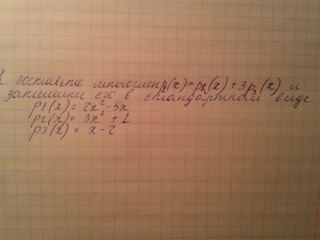 составьте многочлен p(x)=p2(x)+3p3(x) и
запишите его в стандартном виде
p1(x)=2x²-5x
p2(x)=3x³+1
p3(x)=x-2